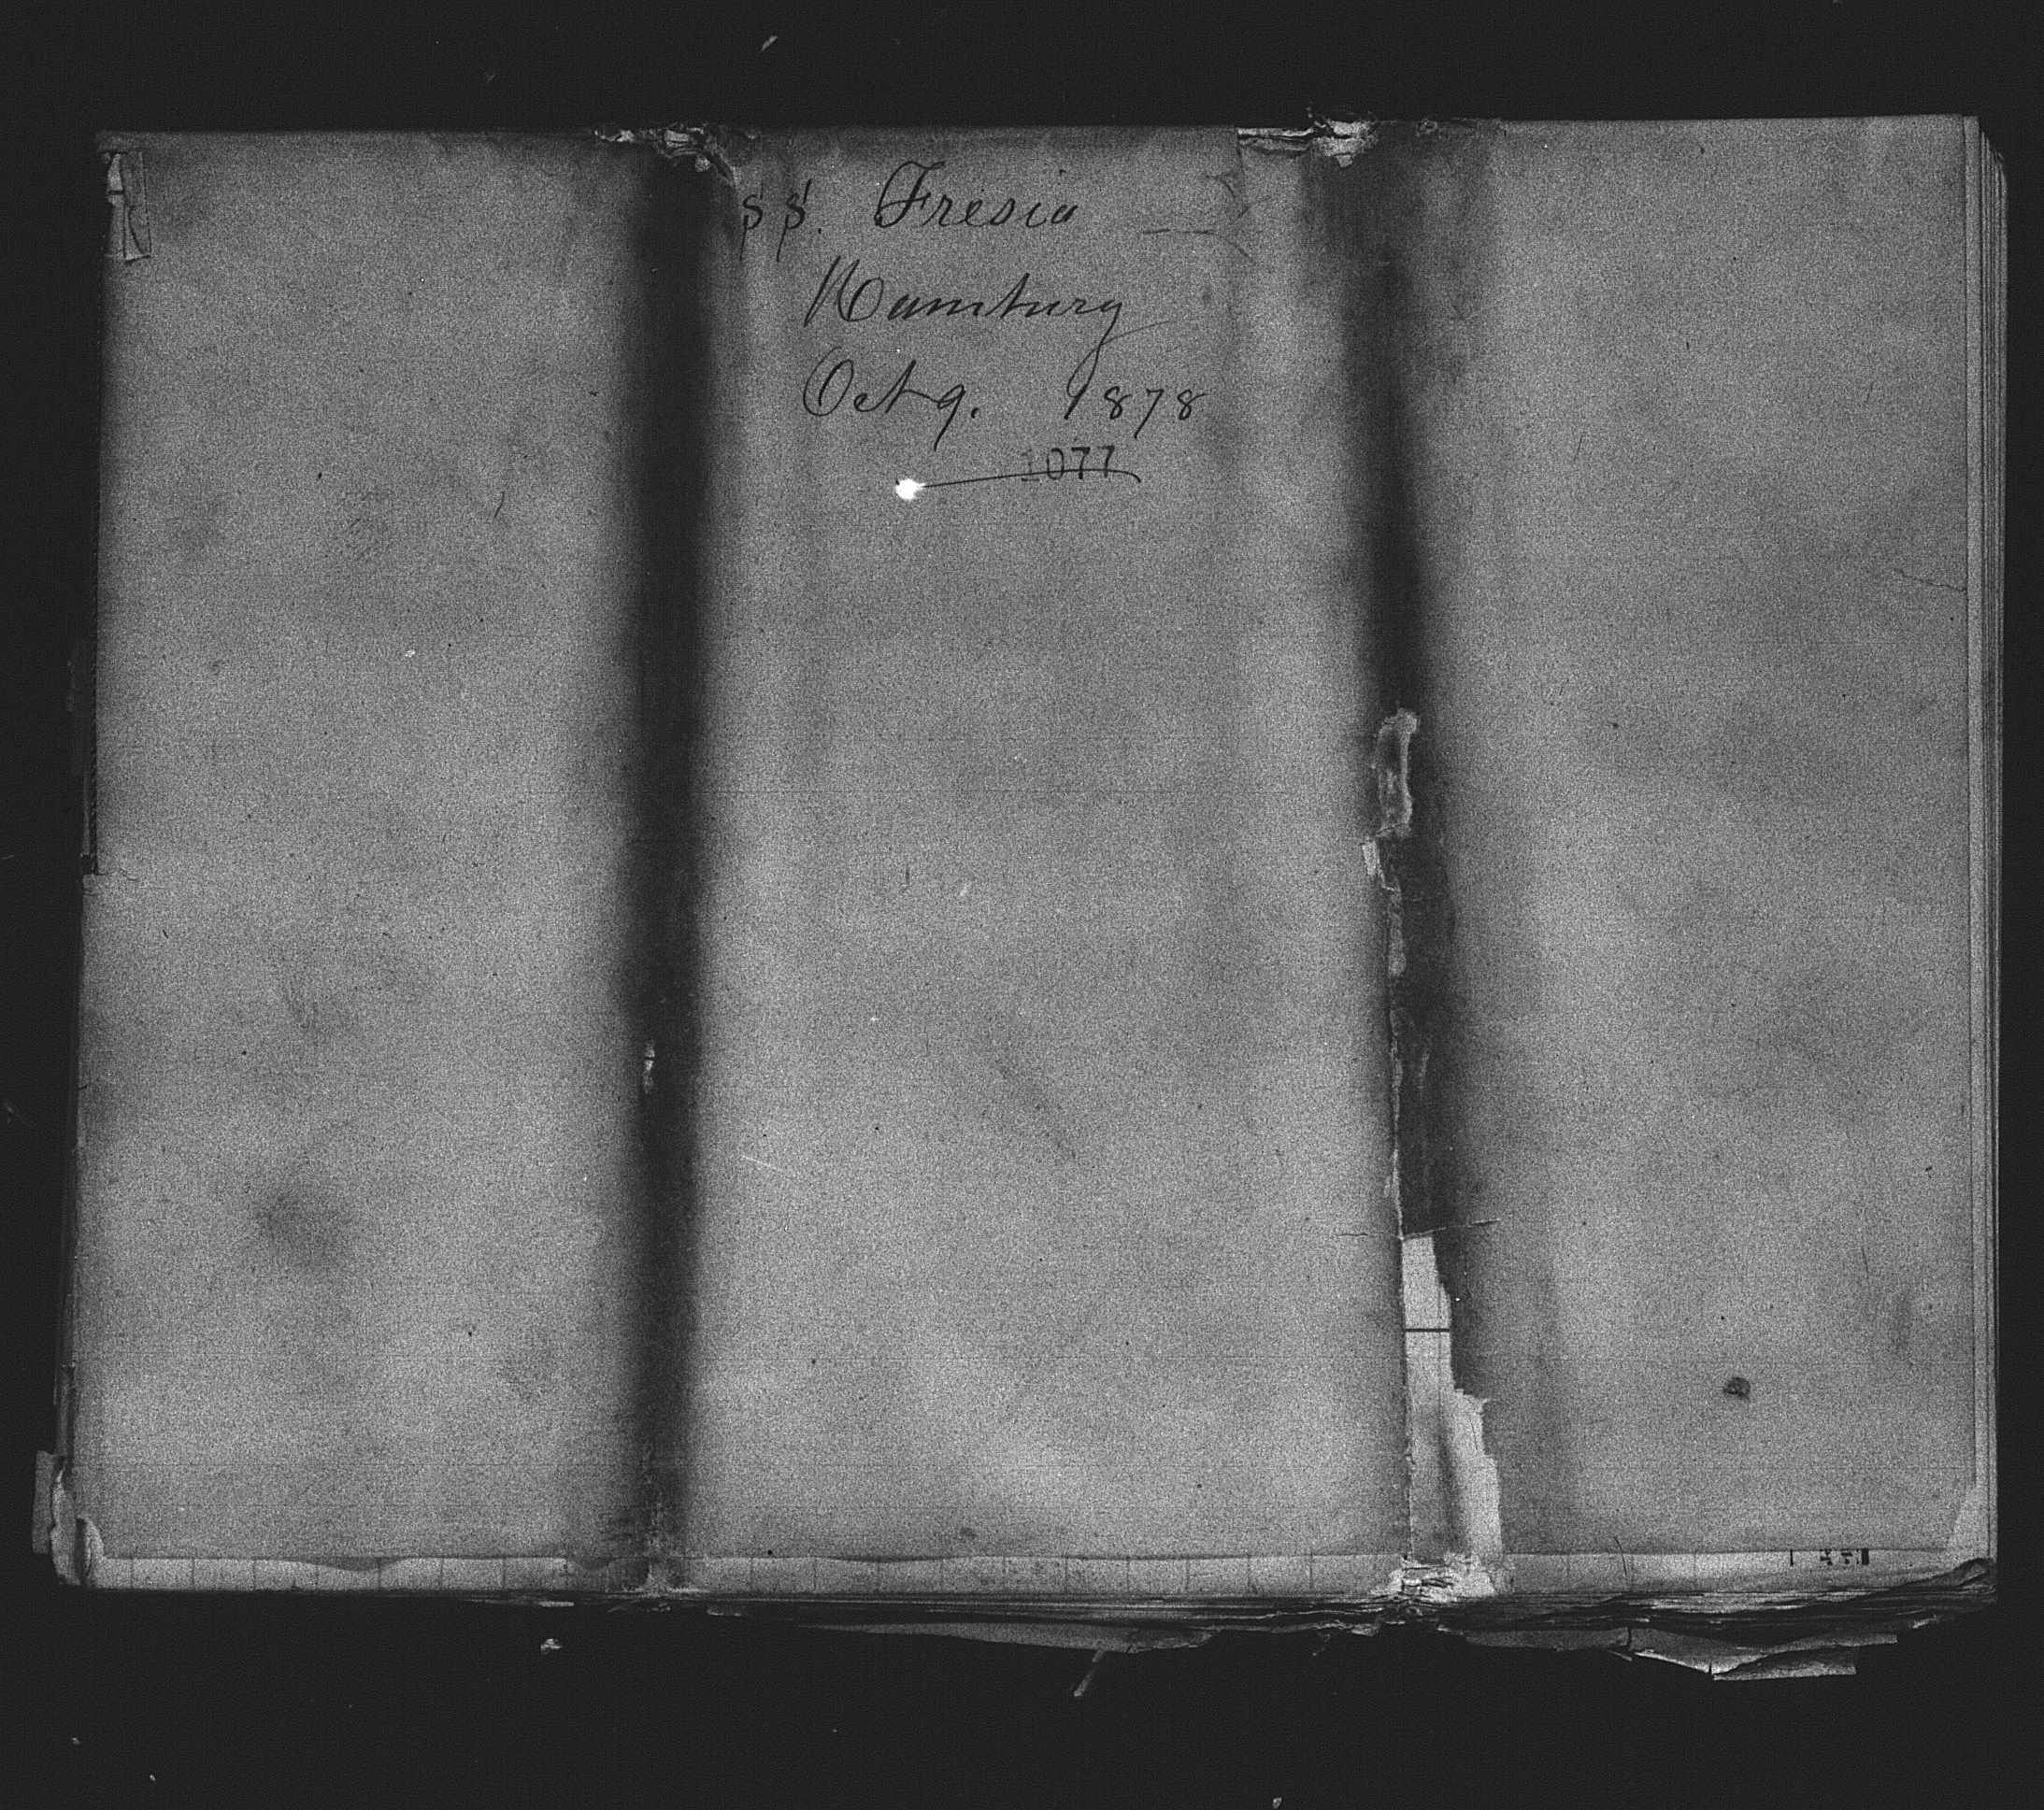 SS. Fresia
Hamburg
Oct 9. 1878
1077